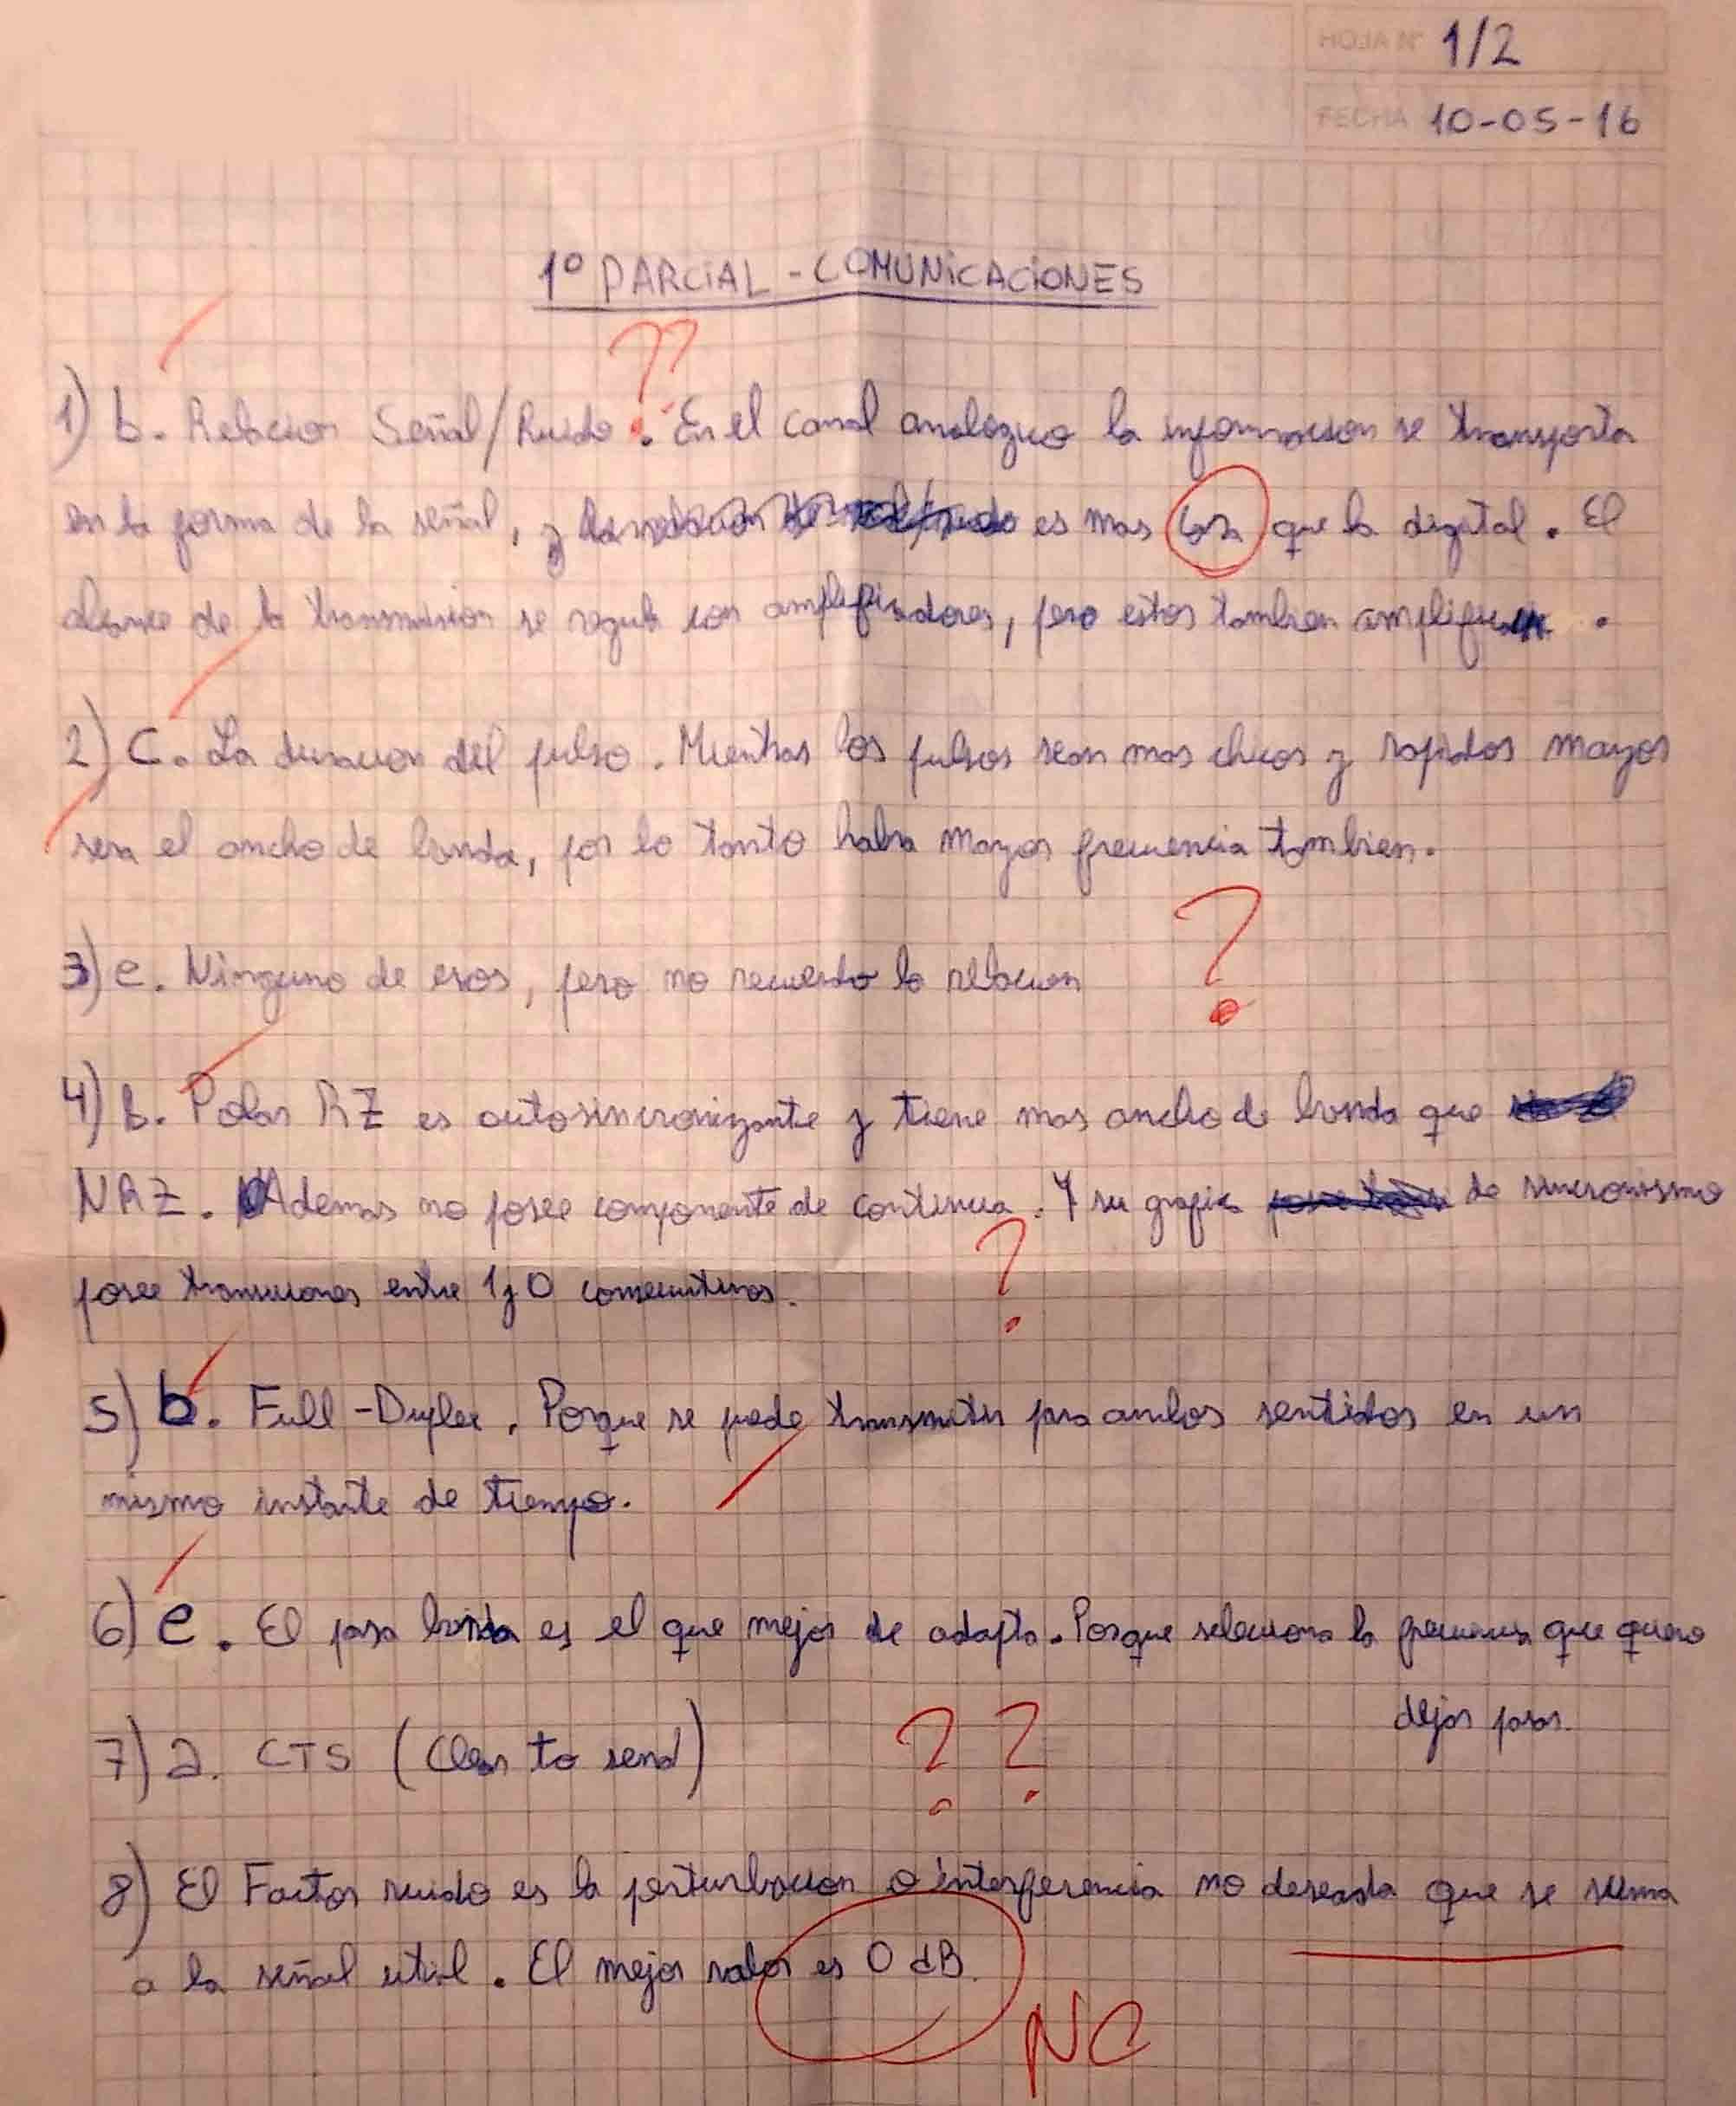 HOJA Nº 1/2
FECHA 10-05-16
1º PARCIAL - COMUNICACIONES
??
1) b. Relacion Señal/Ruido. En el canal analogico la informacion se transporta
en la forma de la señal, y es mas cara que la digital. El
alcance de la transmision se regula con amplificadores, pero estos tambien amplifican .
2) C. La duracion del pulso. Mientras los pulsos sean mas chicos y rapidos mayor
sera el ancho de banda, por lo tanto habra mayor frecuencia tambien.
?
3) e. Ninguno de esos, pero no recuerdo la relacion
4) b. Polar RZ es autosincronizante y tiene mas ancho de banda que
NRZ. Ademas no posee componente de continua. Y su grafica de sincronismo
?
posee transiciones entre 1 y 0 consecutivos.
5) b. Full-Duplex. Porque se puede transmitir para ambos sentidos en un
mismo instante de tiempo.
6) e. El pasa banda es el que mejor se adapta. Porque selecciona la frecuencia que quiero
dejar pasar.
7) a. CTS (Clear to send)
? ?
8) El Factor ruido es la perturbacion o interferencia no deseada que se suma
a la señal util. El mejor valor es 0 dB.
NC